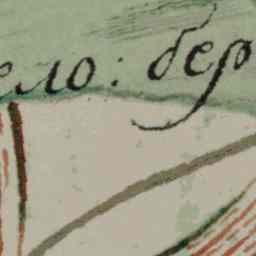 ело: бер